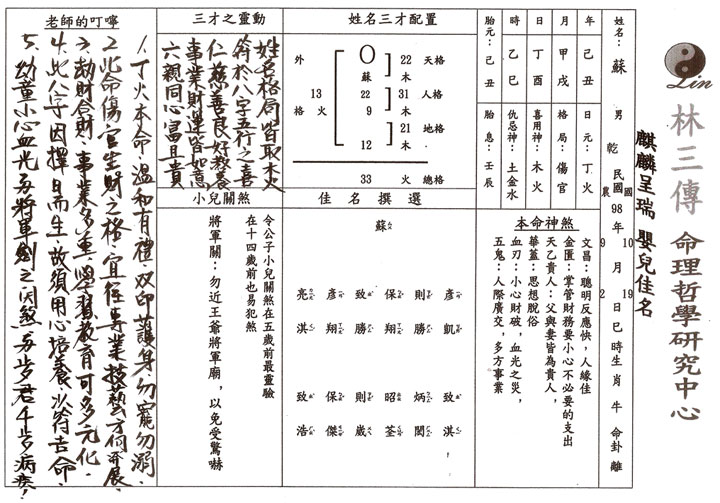 Lin
林三傳 命理哲學研究中心
麒麟呈瑞 嬰兒佳名
姓名：蘇 男 乾 民國98年10月19日巳時生肖牛命卦離
農 9 2
年 己丑 日元：丁火
月 甲戌 格局：傷官
日 丁酉 喜用神：木火
時 乙巳 仇忌神：土金水
胎元：己丑 胎息：壬辰
本命神煞
文昌：聰明反應快，人緣佳
金匱：掌管財務要小心不必要的支出
天乙貴人：父與妻皆為貴人，
華蓋：思想脫俗
血刃：小心財破，血光之災，
五鬼：人際廣交，多方事業
姓名三才配置
天格 22 木
人格 31 木
地格 21 木
外格 13 火
總格 33 火
蘇 22
9
12
佳名撰選
蘇
彥凱
則勝
保翔
致勝
彥翔
亮淇
炳淇
昭荃
則崴
保傑
致浩
三才之靈動
姓名格局皆取木火
符於八字五行之喜
仁慈善良好教養
事業財運皆如意
六親同心富且貴
小兒關煞
令公子小兒關煞在五歲前最靈驗
在十四歲前也易犯煞
將軍關：勿近王爺將軍廟，以免受驚嚇
老師的叮嚀
1. 丁火本命，溫和有禮，双印護身，勿寵勿溺，
2. 此命傷官生財之格，宜往專業技藝方向發展，
3. 劫財合財，事業多重，學習教育可多元化，
4. 此八字因擇日而生，故須用心培養，以符吉命，
5. 幼童小心血光